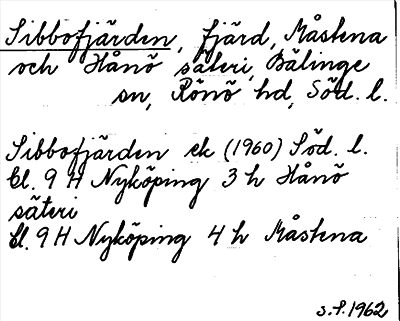 Sibbofjärden, fjärd, Måstena
och Hånö säteri, Bälinge
sn, Rönö hd, Söd. l.
Sibbofjärden ek (1960) Söd. l.
bl. 9 H Nyköping 3 h Hånö
säteri
bl. 9 H Nyköping 4 h Måstena
s.f. 1962